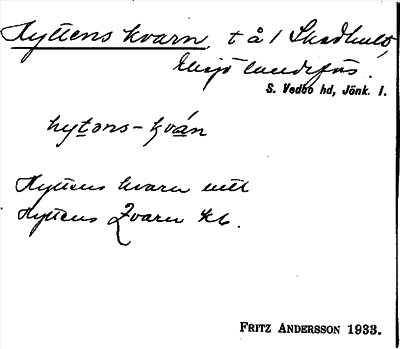 Hyttens kvarn, t å / Skedhult,
Eksjö landsförs.
S. Vedbo hd, Jönk. l.
hytəns-kván
Hyttens kvarn
Hyttens Qvarn
FRITZ ANDERSSON 1933.